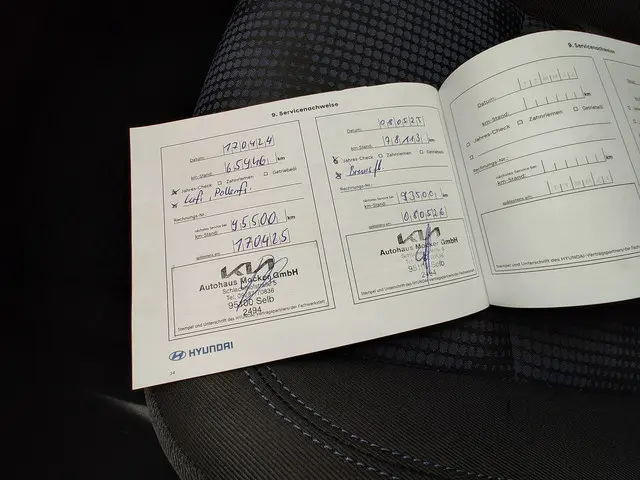 9. Servicenachweise
Datum: 170424
km-Stand: 65946 km
Jahres-Check Zahnriemen Getriebeöl
Luft, Pollenf.
Rechnungs-Nr.:
nächstes Service bei
km-Stand: 95500 km
spätestens am: 170425
KIA
Autohaus Mocker GmbH
95100 Selb
2494
Stempel und Unterschrift des HYUNDAI-Vertragspartners der Fachwerkstatt
HYUNDAI
34
Datum: 080525
km-Stand: 78113 km
Jahres-Check Zahnriemen Getriebeöl
Bremsfl.
Rechnungs-Nr.:
nächstes Service bei
km-Stand: 93500 km
spätestens am: 080526
KIA
Autohaus Mocker GmbH
Selb
2494
Stempel und Unterschrift des HYUNDAI-Vertragspartners der Fachwerkstatt
9. Servicenachweise
Datum:
km-Stand: km
Jahres-Check Zahnriemen Getriebeöl
Rechnungs-Nr.:
nächstes Service bei
km-Stand: km
spätestens am:
Stempel und Unterschrift des HYUNDAI-Vertragspartners der Fach